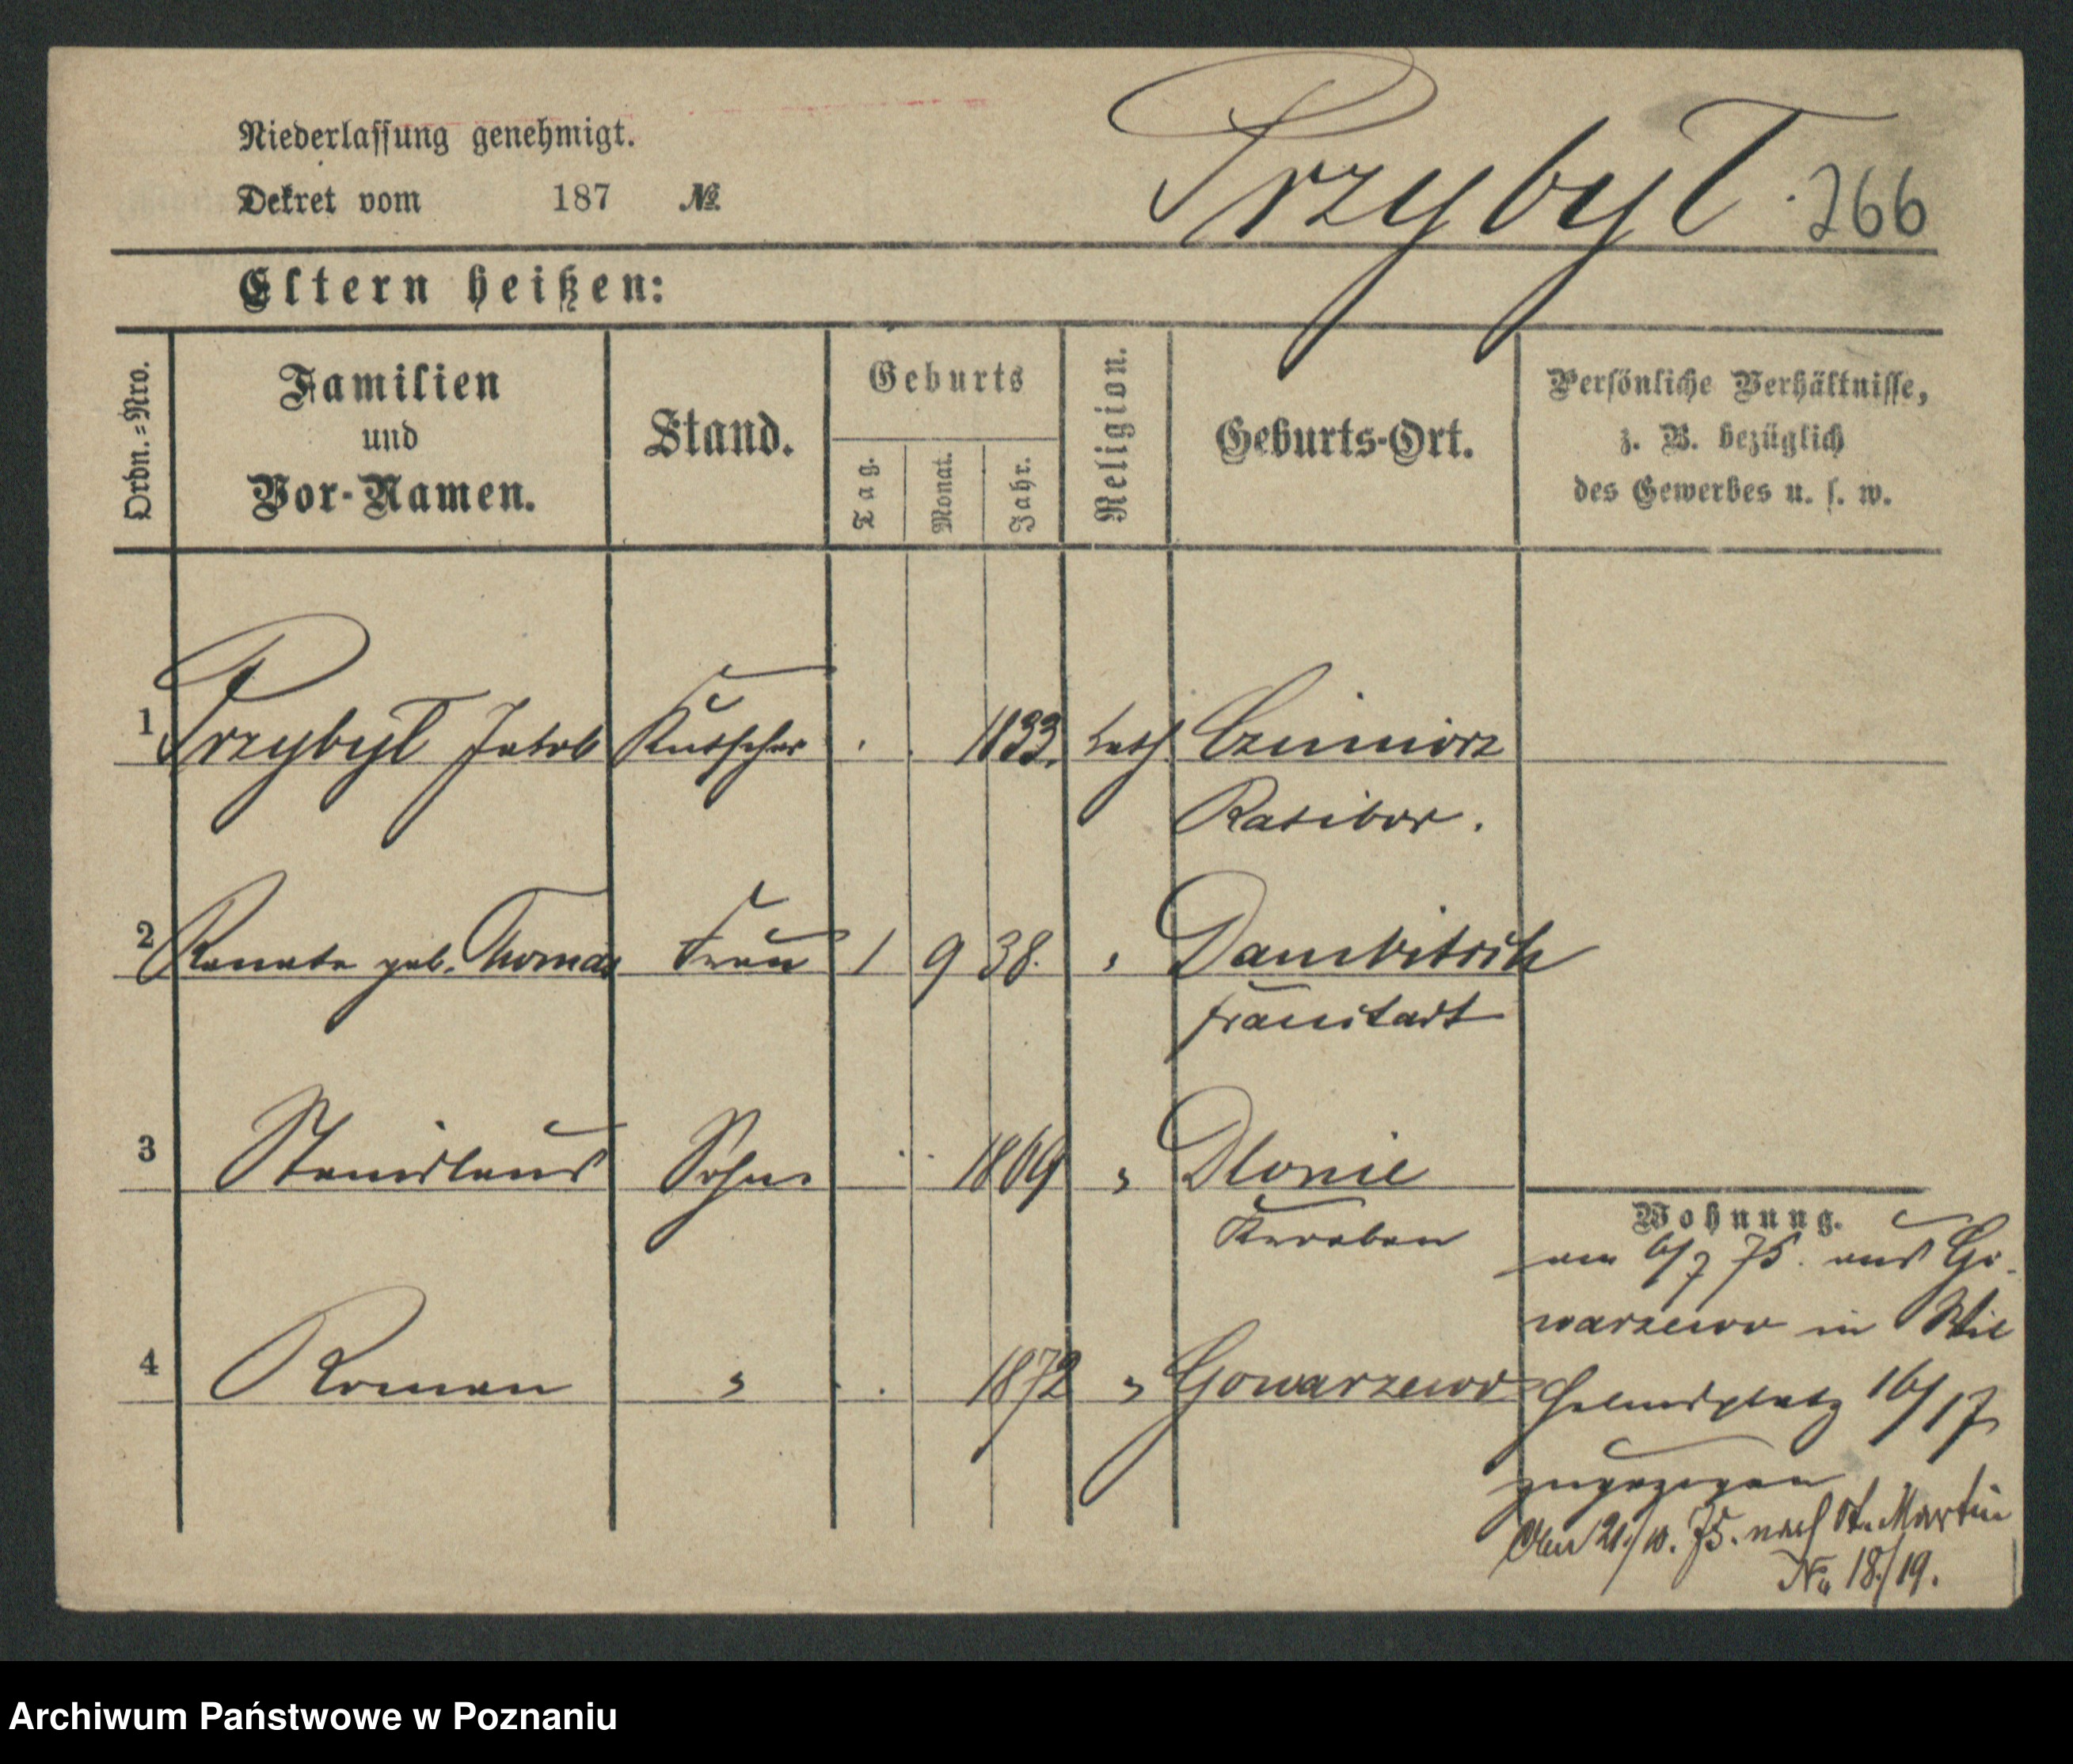 Niederlassung genehmigt.
Dekret vom 187 №
Przybyl 266
Eltern heißen:
Ordn.-Nro.
Familien und Vor-Namen.
Stand.
Geburts
Tag. Monat. Jahr.
Religion.
Geburts-Ort.
Persönliche Verhältnisse,
z. B. bezüglich
des Gewerbes u. s. w.
1 Przybyl Jakob Kutscher 1833. kath.
Ratibor.
2 Renate geb. Thomas Frau 1 9 38. " Dambitsch
Fraustadt
3 Stanislaus Sohn 1869 " Dlonie
Kroeben
4 Roman " 1872 " Gowarzewo
Wohnung.
am 6/7 75. aus Go-
warzewo in Wil
helmsplatz 16/17
zugezogen
Den 21./10. 75. nach St. Martin
No 18./19.
Archiwum Państwowe w Poznaniu